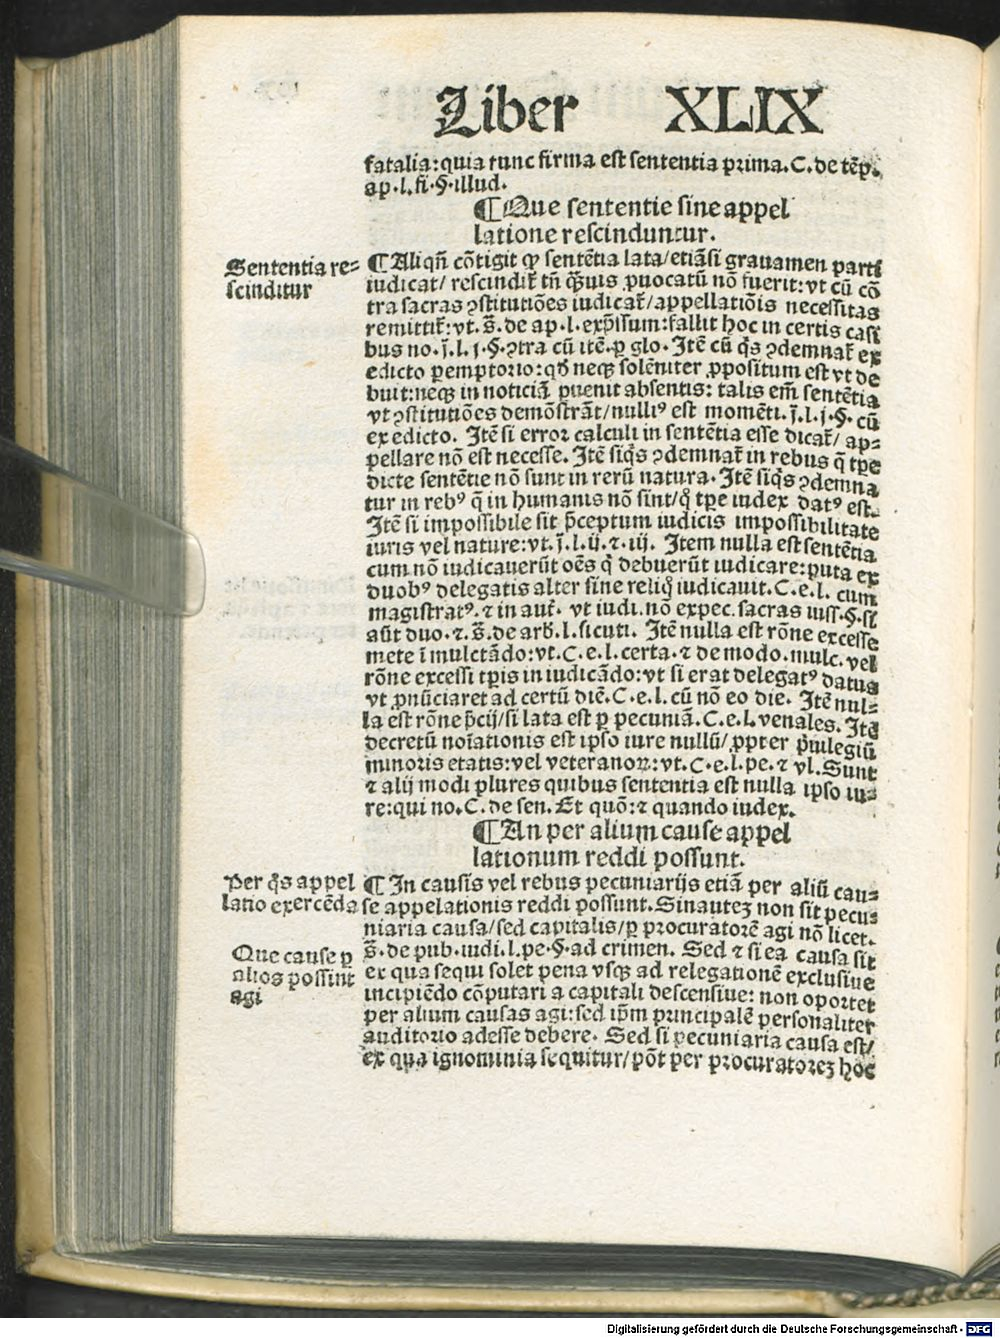 Liber XLIX
fatalia: quia tunc firma est sententia prima. C. de tēp.
ap. l. fi. §. illud.
¶ Que sententie sine appel
latione rescinduntur.
Sententia re=
scinditur
¶ Aliqñ cōtigit ꝙ sentētia lata/ etiāsi grauamen parti
iudicat/ rescindit᷑ tñ q̄uis ꝓuocatū nō fuerit: vt cū cō
tra sacras ꝯstitutiōes iudicat᷑/ appellatiōis necessitas
remittit᷑: vt. s̄. de ap. l. exp̄ssum: fallit hoc in certis casi
bus no. j̄. l. j. §. ꝯtra cū itē. ꝑ glo. Itē cū q̄s ꝯdemnat᷑ ex
edicto ꝑemptorio: qđ neqꝫ solēniter ꝓpositum est vt de
buit: neqꝫ in noticiā ꝑuenit absentis: talis em̄ sentētia
vt ꝯstitutiōes demōstrāt/ nulliꝰ est momēti. j̄. l. j. §. cū
ex edicto. Itē si error calculi in sentētia esse dicat᷑/ ap=
pellare nō est necesse. Itē siq̄s ꝯdemnat᷑ in rebus q̄ tꝑe
dicte sentētie nō sunt in rerū natura. Itē siq̄s ꝯdemna
tur in rebꝰ q̄ in humanis nō sint/ q̄ tꝑe iudex datꝰ est.
Itē si impossibile sit p̄ceptum iudicis impossibilitate
iuris vel nature: vt. j̄. l. ij. ⁊. iij. Item nulla est sentētia
cum nō iudicauerūt oēs q̄ debuerūt iudicare: puta ex
duobꝰ delegatis alter sine reliq̄ iudicauit. C. e. l. cum
magistratꝰ. ⁊ in aut᷑. vt iudi. nō expec. sacras iuss. §. si
aūt duo. ⁊. s̄. de arb. l. sicuti. Itē nulla est rōne excesse
mete ī mulctādo: vt. C. e. l. certa. ⁊ de modo. mulc. vel
rōne excessi tꝑis in iudicādo: vt si erat delegatꝰ datus
vt ꝓnūciaret ad certū diē. C. e. l. cū nō eo die. Itē nul=
la est rōne p̄cij/ si lata est ꝑ pecuniā. C. e. l. venales. Itē
decretū noīationis est ipso iure nullū/ ꝓpter p̄uilegiū
minoris etatis: vel veteranoꝝ: vt. C. e. l. pe. ⁊ vl. Sunt
⁊ alij modi plures quibus sententia est nulla ipso iu=
re: qui no. C. de sen. Et quō: ⁊ quando iudex.
¶ An per alium cause appel
lationum reddi possunt.
Per q̄s appel
latio exercēda
¶ In causis vel rebus pecuniarijs etiā per aliū cau=
se appelationis reddi possunt. Sinauteꝫ non sit pecu=
niaria causa/ sed capitalis/ ꝑ procuratorē agi nō licet.
Que cause ꝑ
alios possint
agi
s̄. de pub. iudi. l. pe. §. ad crimen. Sed ⁊ si ea causa sit
ex qua sequi solet pena vsqꝫ ad relegationē exclusiue
incipiēdo cōputari a capitali descensiue: non oportet
per alium causas agi: sed ip̄m principalē personaliter
auditorio adesse debere. Sed si pecuniaria causa est/
ex qua ignominia sequitur/ pōt per procuratoreꝫ hoc
Digitalisierung gefördert durch die Deutsche Forschungsgemeinschaft - DFG